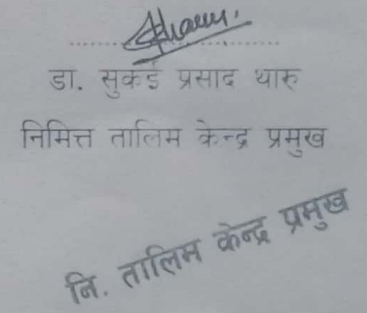 डा. सुकई प्रसाद थारु
निमित्त तालिम केन्द्र प्रमुख
नि. तालिम केन्द्र प्रमुख